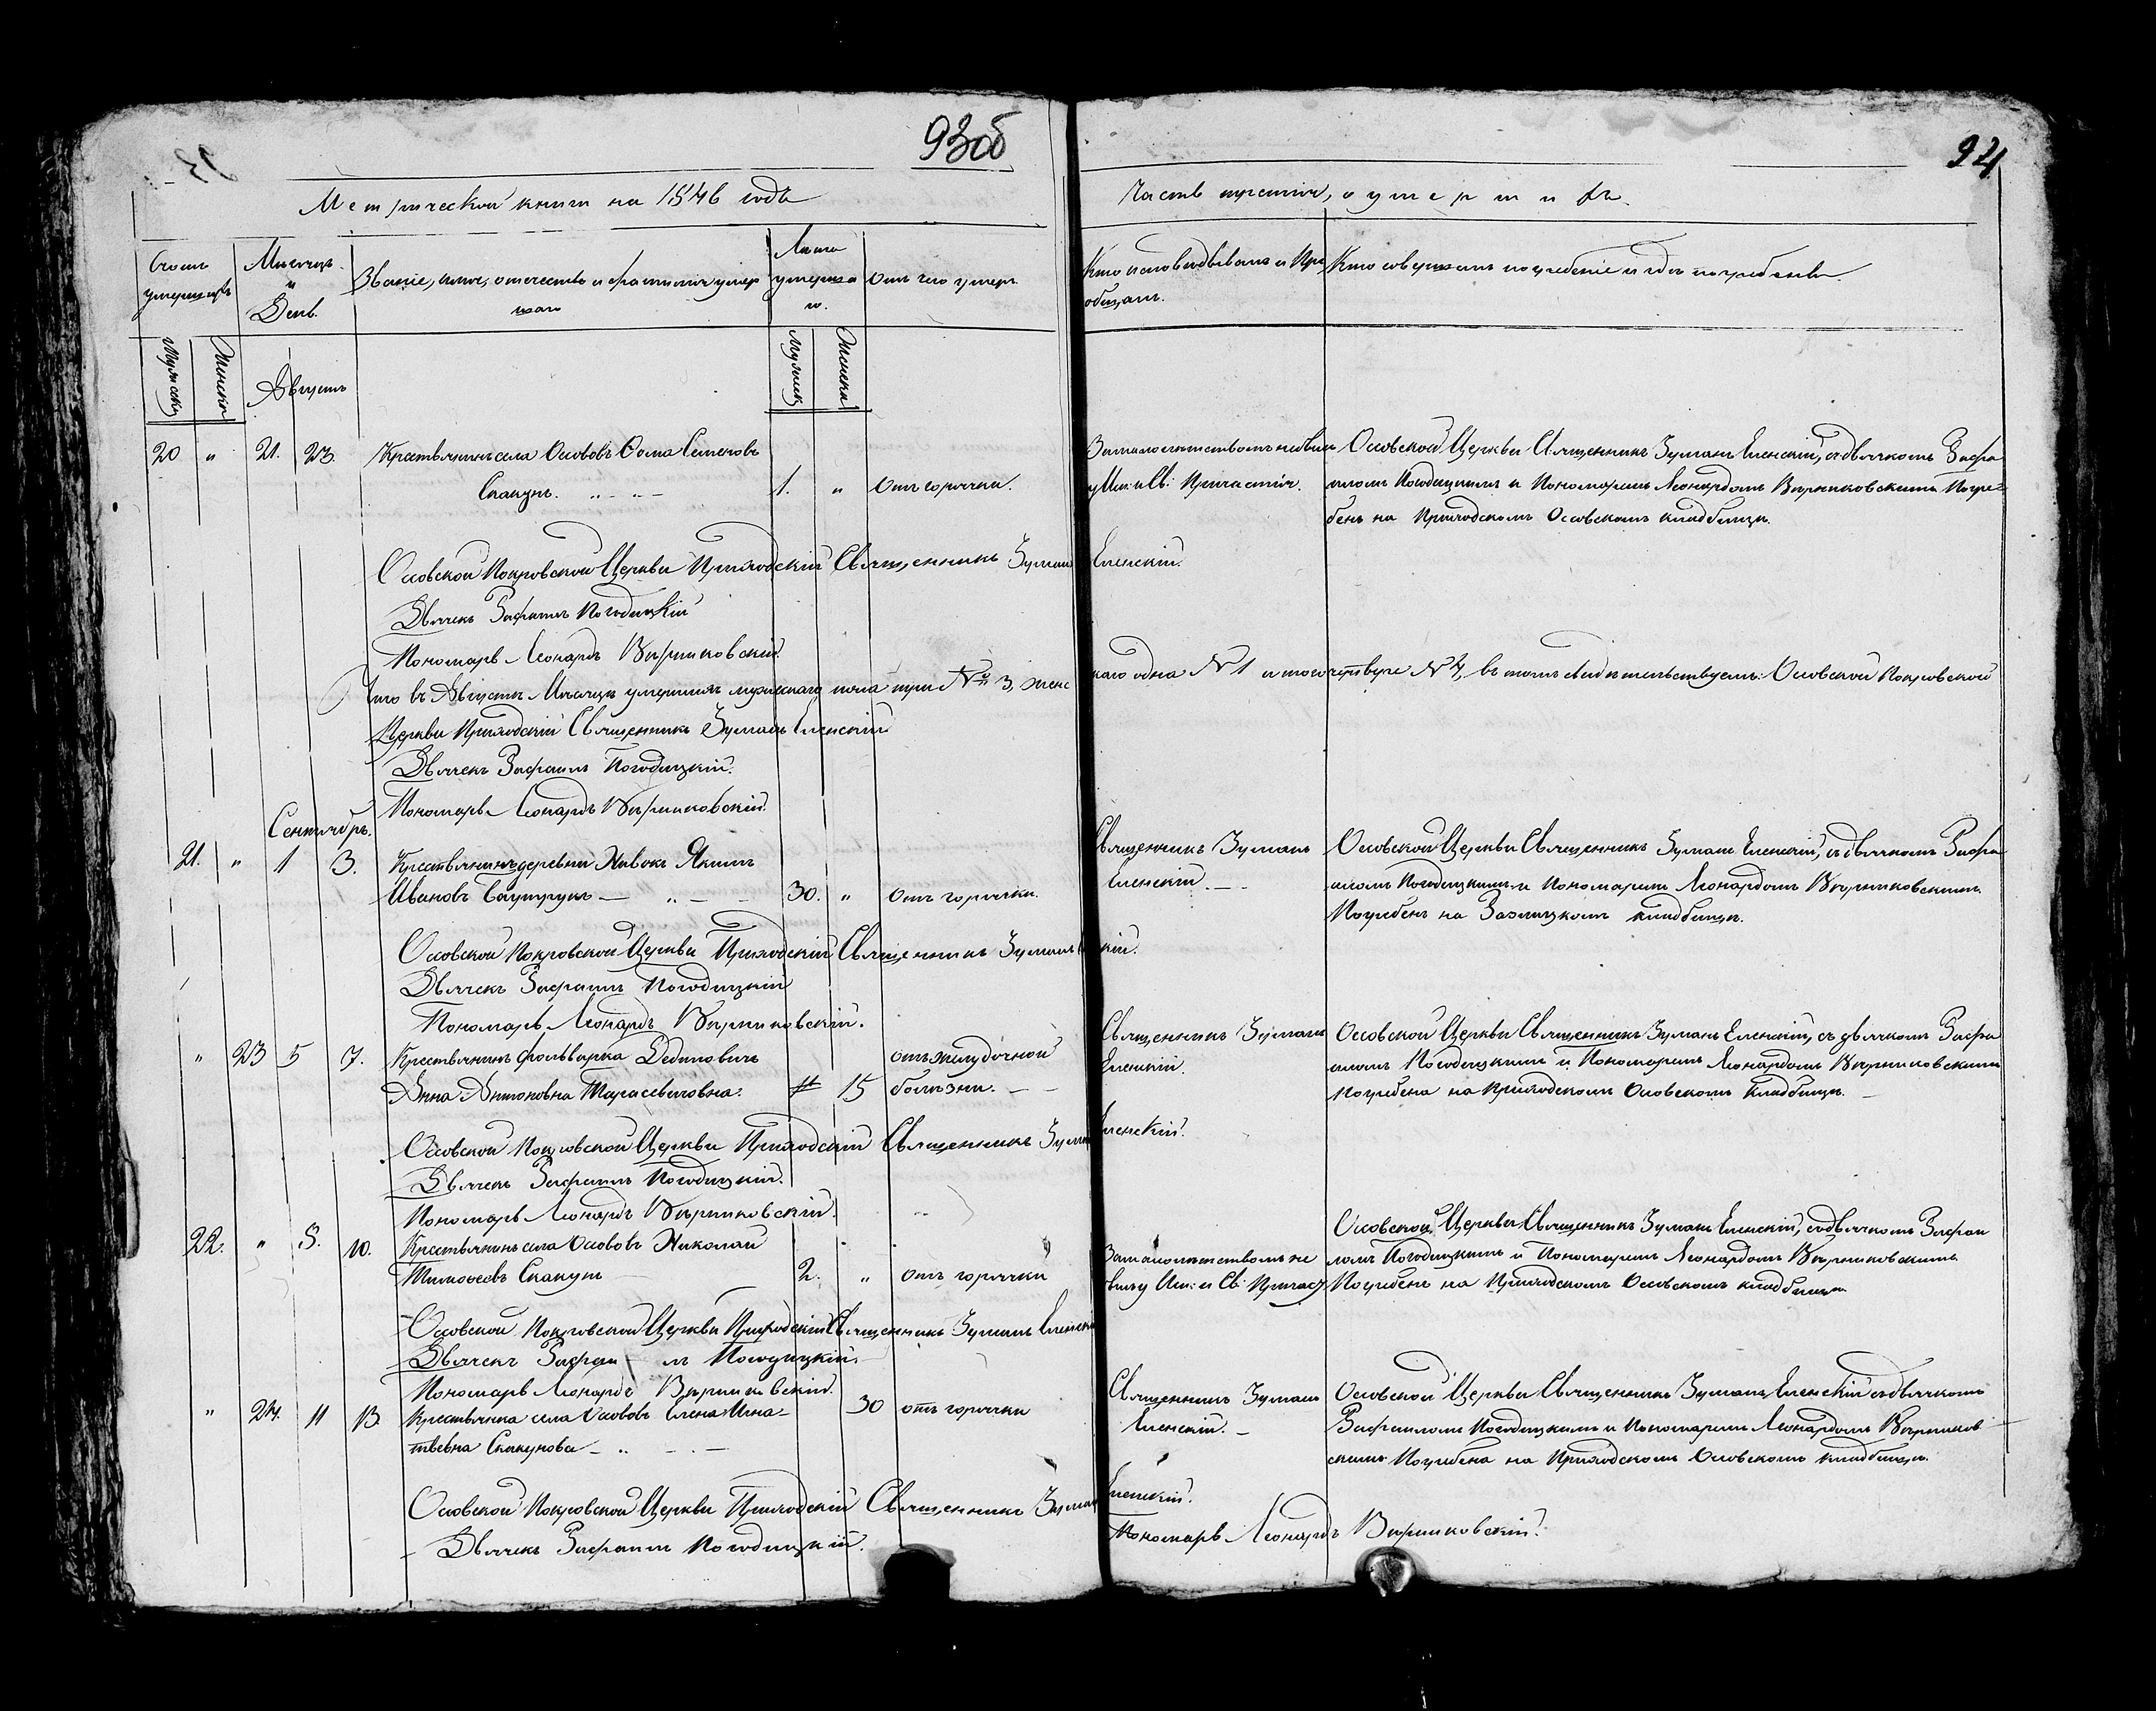 93об
94
Метрической книги на 1846 годъ
Часть третія, о умершихъ.
Счетъ умершихъ
Мѣсяцъ и День.
Званіе, имя, отечество и фамилія умер
шаго
Лѣта умершаго.
Отъ чего умеръ
Кто исповѣдывалъ и Прі
общалъ.
Кто совершалъ погребеніе и гдѣ погребены.
Мужска
Женска
Августъ
Мужеск
Женска
20 " 21. 23. Крестьянинъ села Оссовъ Ѳома Семеновъ
Скакунъ. 1. " Отъ горячки.
За малолѣтствомъ небылъ
у Исп: и Св: Причастія.
Оссовской Церкви Священникъ Зуманъ Еленскій, съ дьячкомъ Рафа
иломъ Погодицкимъ и Пономаремъ Леонардомъ Верниковскимъ. Погре=
бенъ на Приходскомъ Оссовскомъ кладбищѣ.
Оссовской Покровской Церкви Приходскій Священникъ Зуманъ Еленскій.
Дьячекъ Рафаилъ Погодицкій
Пономарь Леонардъ Верниковскій.
Что въ Августѣ Мѣсяцѣ умершихъ мужескаго пола три № 3, женс каго одна № 1 итого четверо № 4, въ томъ свидѣтельствуемъ: Оссовской Покровской
Церкви Приходскій Священникъ Зуманъ Еленскій
Дьячекъ Рафаилъ Погодицкій.
Пономарь Леонардъ Верниковскій.
Сентябрь.
21. " 1 3. Крестьянинъ деревни Нивокъ Якимъ
Ивановъ 30. " Отъ горячки.
Священникъ Зуманъ
Еленскій.
Оссовской Церкви Священникъ Зуманъ Еленскій, съ дьячкомъ Рафа
иломъ Погодицкимъ и Пономаремъ Леонардомъ Верниковскимъ.
Погребенъ на кладбищѣ.
Оссовской Покровской Церкви Приходскій Священникъ Зуманъ Е кій.
Дьячекъ Рафаилъ Погодицкій
Пономарь Леонардъ Верниковскій.
" 23 5 7. Крестьянинъ фольварка Дединовичъ отъ желудочной
Анна Антоновна Тарасевичовна. " 15 болѣзни.
Священникъ Зуманъ
Еленскій.
Оссовской Церкви Священникъ Зуманъ Еленскій, съ дьячкомъ Рафа
иломъ Погодицкимъ и Пономаремъ Леонардомъ Верниковскимъ
Погребена на Приходскомъ Оссовскомъ Кладбищѣ.
Оссовской Покровской Церкви Приходскій Священникъ Зуман Еленскій.
Дьячекъ Рафаилъ Погодицкій.
Пономарь Леонардъ Верниковскій.
22. " 8. 10. Крестьянинъ села Оссовъ Николай
Тимоѳеевъ Скакунъ 2. " отъ горячки
За малолѣтствомъ не
былъ у Исп: и Св: Причаст.
Оссовской Церкви Священникъ Зуманъ Еленскій, съ дьячкомъ Рафаи
ломъ Погодицкимъ и Пономаремъ Леонардомъ Верниковскимъ
Погребенъ на Приходскомъ Оссовскомъ кладбищѣ.
Оссовской Покровской Церкви Приходскій Священникъ Зуманъ Еленскі
Дьячекъ Рафаи - лъ Погодицкій.
Пономарь Леонардъ Верниковскій.
" 24. 11 13. Крестьянка села Оссовъ Елена Игна- 30 отъ горячки
тьевна Скакунова
Священникъ Зуманъ
Еленскій.
Оссовской Церкви Священникъ Зуманъ Еленскій съ дьячкомъ
Рафаиломъ Погодицкимъ и Пономаремъ Леонардомъ Верников
скимъ Погребена на Приходскомъ Оссовскомъ кладбищѣ.
Оссовской Покровской Церкви Приходскій Священникъ Зуман Еленскій.
Дьячекъ Рафаилъ Погодицкій. Пономарь Леонардъ Верниковскій.